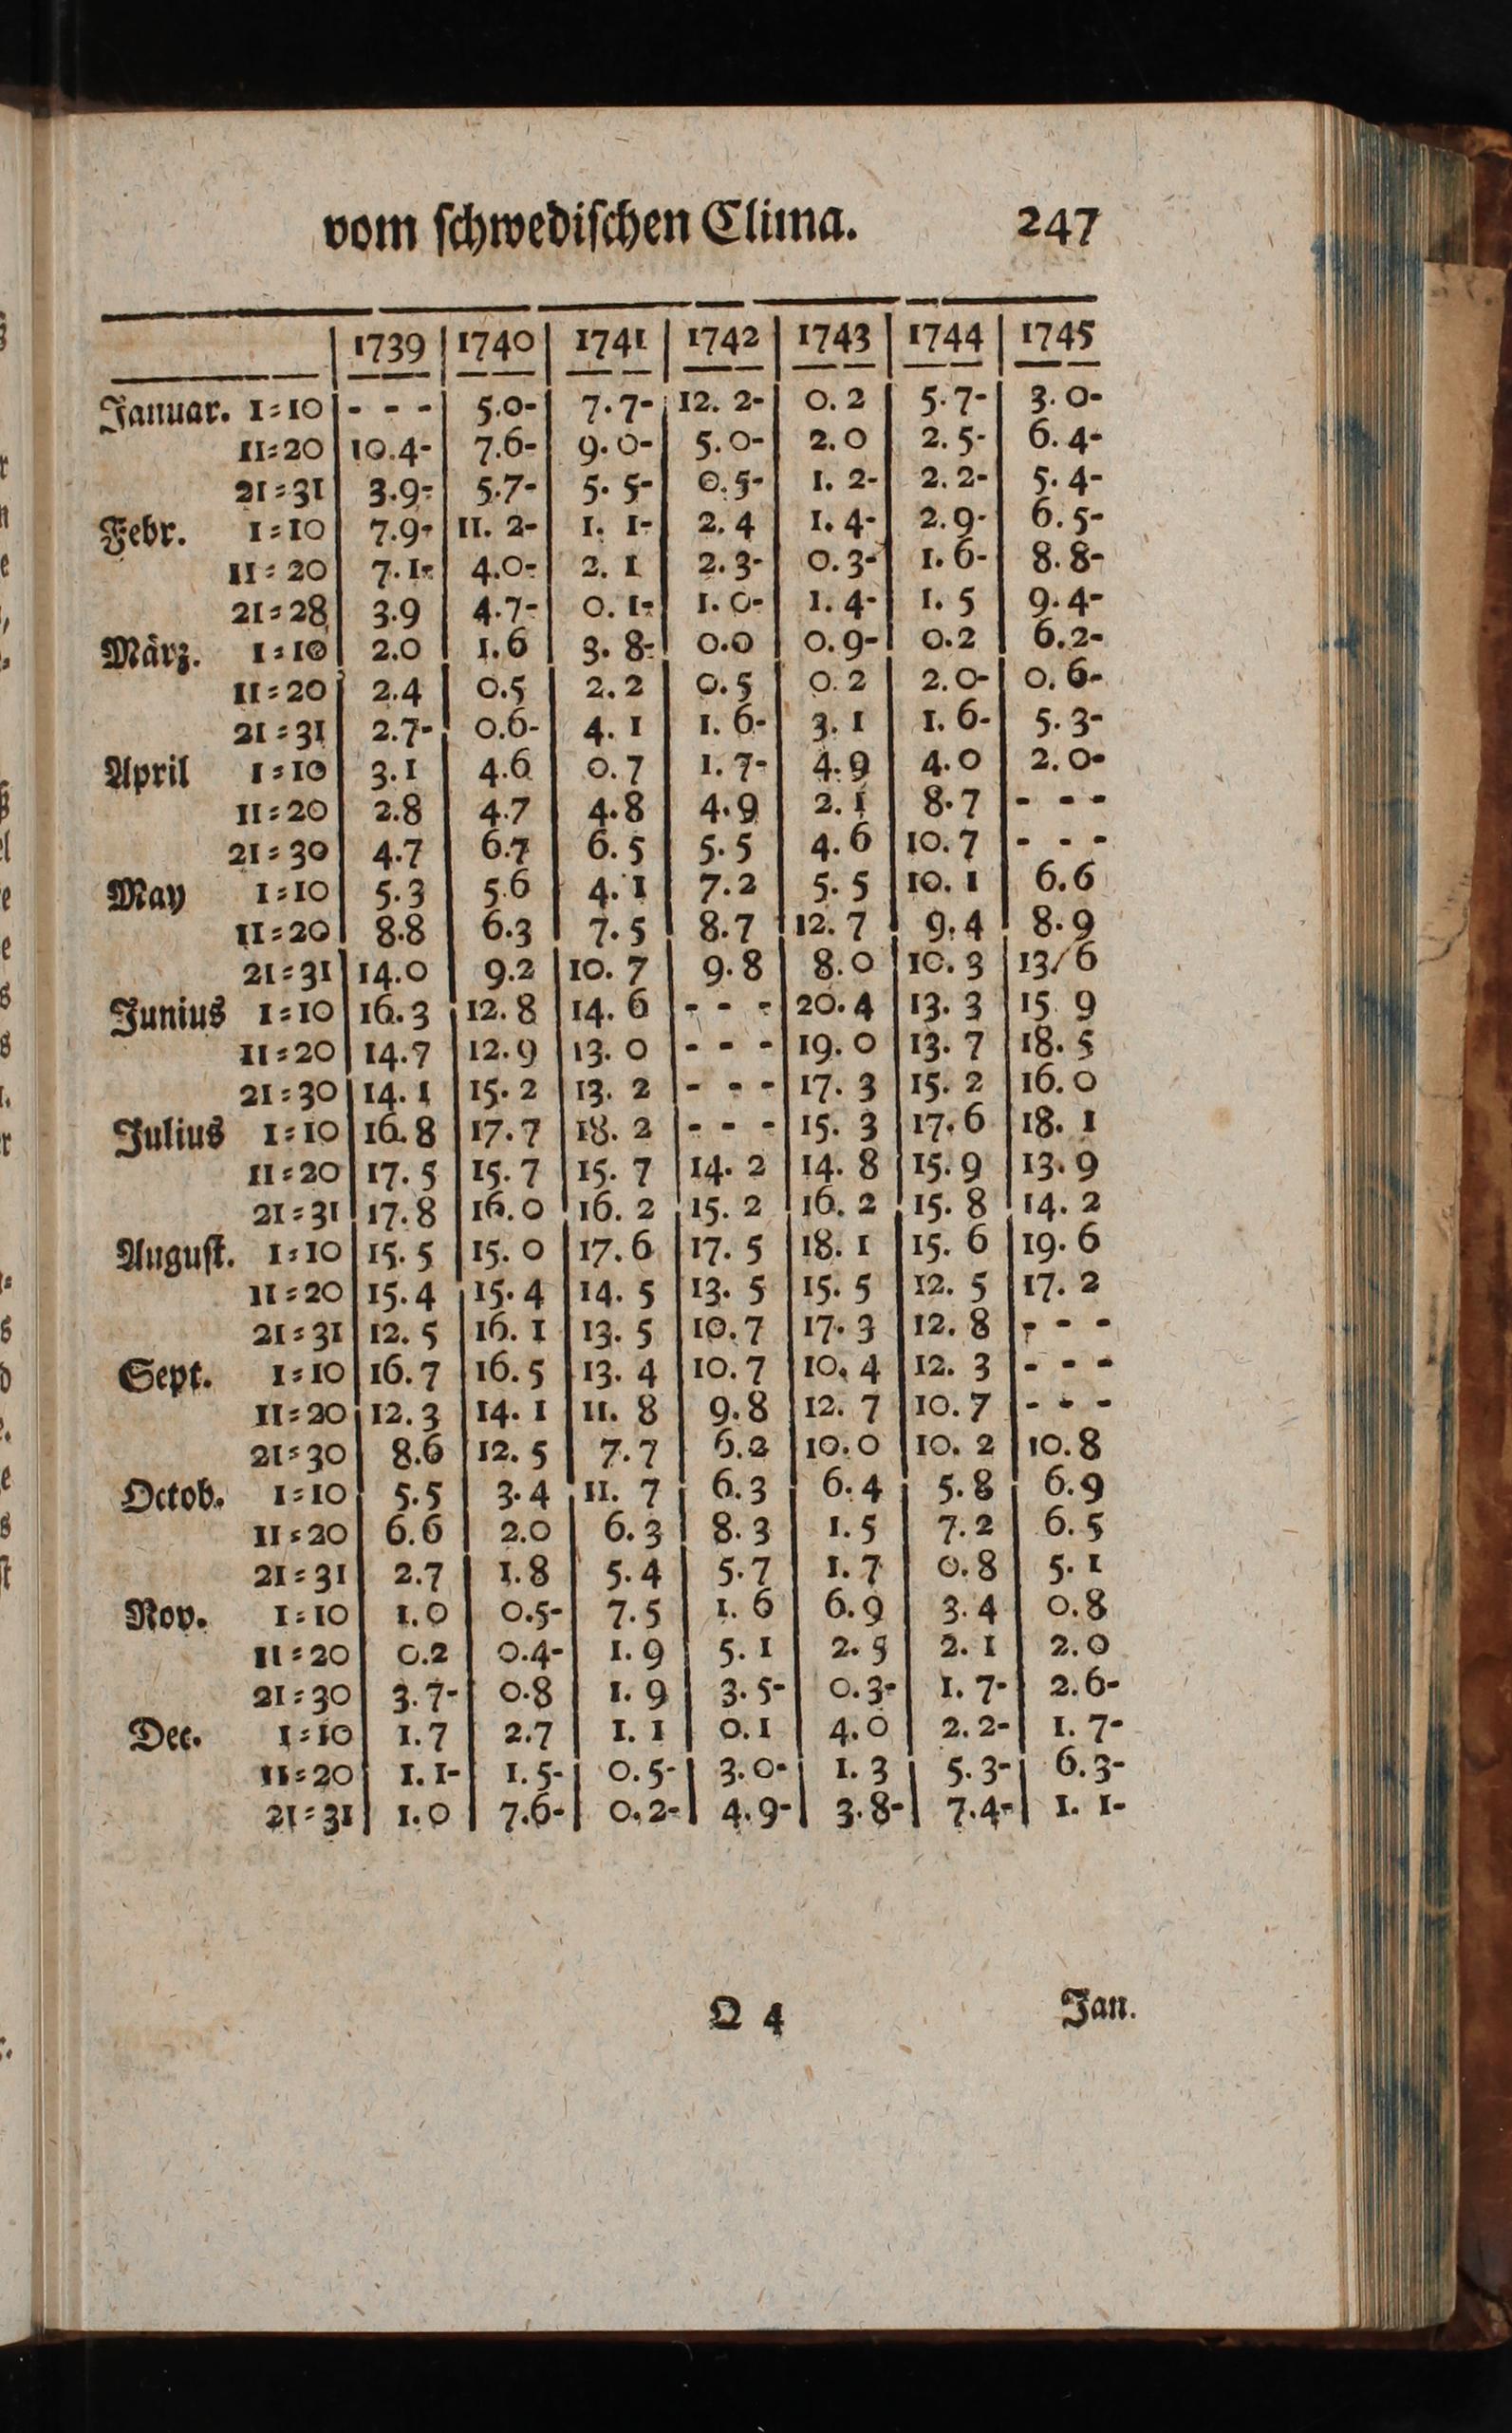 vom ſchwediſchen Clima. 247
| 1739 | 1740 | 1741 | 1742 | 1743 | 1744 | 1745
Januar. 1=10 | - - - | 5.0- | 7.7- | 12. 2- | 0. 2 | 5.7- | 3. 0-
11=20 | 10.4- | 7.6- | 9. 0- | 5. 0- | 2. 0 | 2. 5- | 6. 4-
21=31 | 3.9- | 5.7- | 5. 5- | 0.5- | 1. 2- | 2. 2- | 5. 4-
Febr. 1=10 | 7.9- | 11. 2- | 1. 1- | 2. 4 | 1. 4- | 2. 9- | 6. 5-
11=20 | 7.1- | 4.0- | 2. 1 | 2. 3- | 0. 3- | 1. 6- | 8. 8-
21=28 | 3.9 | 4.7- | 0. 1- | 1. 0- | 1. 4- | 1. 5 | 9. 4-
März. 1=10 | 2.0 | 1.6 | 3. 8- | 0.0 | 0. 9- | 0.2 | 6.2-
11=20 | 2.4 | 0.5 | 2. 2 | 0. 5 | 0. 2 | 2. 0- | 0. 6-
21=31 | 2.7- | 0.6- | 4. 1 | 1. 6- | 3. 1 | 1. 6- | 5. 3-
April 1=10 | 3.1 | 4.6 | 0. 7 | 1. 7- | 4. 9 | 4. 0 | 2. 0-
11=20 | 2.8 | 4.7 | 4.8 | 4. 9 | 2. 1 | 8. 7 | - - -
21=30 | 4.7 | 6.7 | 6. 5 | 5. 5 | 4. 6 | 10. 7 | - - -
May 1=10 | 5.3 | 5.6 | 4. 1 | 7. 2 | 5. 5 | 10. 1 | 6.6
11=20 | 8.8 | 6.3 | 7. 5 | 8. 7 | 12. 7 | 9. 4 | 8. 9
21=31 | 14.0 | 9.2 | 10. 7 | 9. 8 | 8. 0 | 10. 3 | 13/6
Junius 1=10 | 16.3 | 12. 8 | 14. 6 | - - - | 20. 4 | 13. 3 | 15 9
11=20 | 14.7 | 12. 9 | 13. 0 | - - - | 19. 0 | 13. 7 | 18. 5
21=30 | 14. 1 | 15. 2 | 13. 2 | - - - | 17. 3 | 15. 2 | 16. 0
Julius 1=10 | 16. 8 | 17. 7 | 18. 2 | - - - | 15. 3 | 17. 6 | 18. 1
11=20 | 17. 5 | 15. 7 | 15. 7 | 14. 2 | 14. 8 | 15. 9 | 13. 9
21=31 | 17. 8 | 16. 0 | 16. 2 | 15. 2 | 16. 2 | 15. 8 | 14. 2
Auguſt. 1=10 | 15. 5 | 15. 0 | 17. 6 | 17. 5 | 18. 1 | 15. 6 | 19. 6
11=20 | 15. 4 | 15. 4 | 14. 5 | 13. 5 | 15. 5 | 12. 5 | 17. 2
21=31 | 12. 5 | 16. 1 | 13. 5 | 10. 7 | 17. 3 | 12. 8 | - - -
Sept. 1=10 | 16. 7 | 16. 5 | 13. 4 | 10. 7 | 10. 4 | 12. 3 | - - -
11=20 | 12. 3 | 14. 1 | 11. 8 | 9. 8 | 12. 7 | 10. 7 | - - -
21=30 | 8.6 | 12. 5 | 7. 7 | 6. 2 | 10. 0 | 10. 2 | 10. 8
Octob. 1=10 | 5.5 | 3. 4 | 11. 7 | 6. 3 | 6. 4 | 5. 8 | 6. 9
11=20 | 6.6 | 2.0 | 6. 3 | 8. 3 | 1. 5 | 7. 2 | 6. 5
21=31 | 2.7 | 1.8 | 5. 4 | 5. 7 | 1. 7 | 0. 8 | 5. 1
Nov. 1=10 | 1.0 | 0.5- | 7. 5 | 1. 6 | 6. 9 | 3. 4 | 0. 8
11=20 | 0.2 | 0.4- | 1. 9 | 5. 1 | 2. 5 | 2. 1 | 2. 0
21=30 | 3.7- | 0.8 | 1. 9 | 3. 5- | 0. 3- | 1. 7- | 2. 6-
Dec. 1=10 | 1.7 | 2.7 | 1. 1 | 0. 1 | 4. 0 | 2. 2- | 1. 7-
11=20 | 1. 1- | 1. 5- | 0. 5- | 3. 0- | 1. 3 | 5. 3- | 6. 3-
21=31 | 1.0 | 7.6- | 0. 2- | 4. 9- | 3. 8- | 7. 4- | 1. 1-
Q 4 Jan.